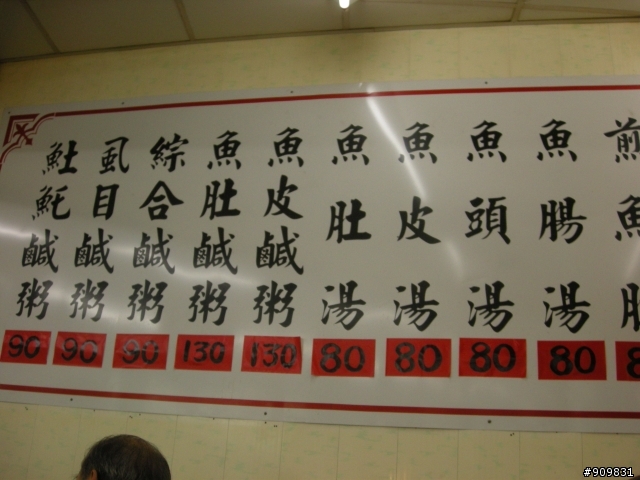 𩵚魠鹹粥 90
虱目鹹粥 90
綜合鹹粥 90
魚肚鹹粥 130
魚皮鹹粥 130
魚肚湯 80
魚皮湯 80
魚頭湯 80
魚腸湯 80
煎魚
#909831